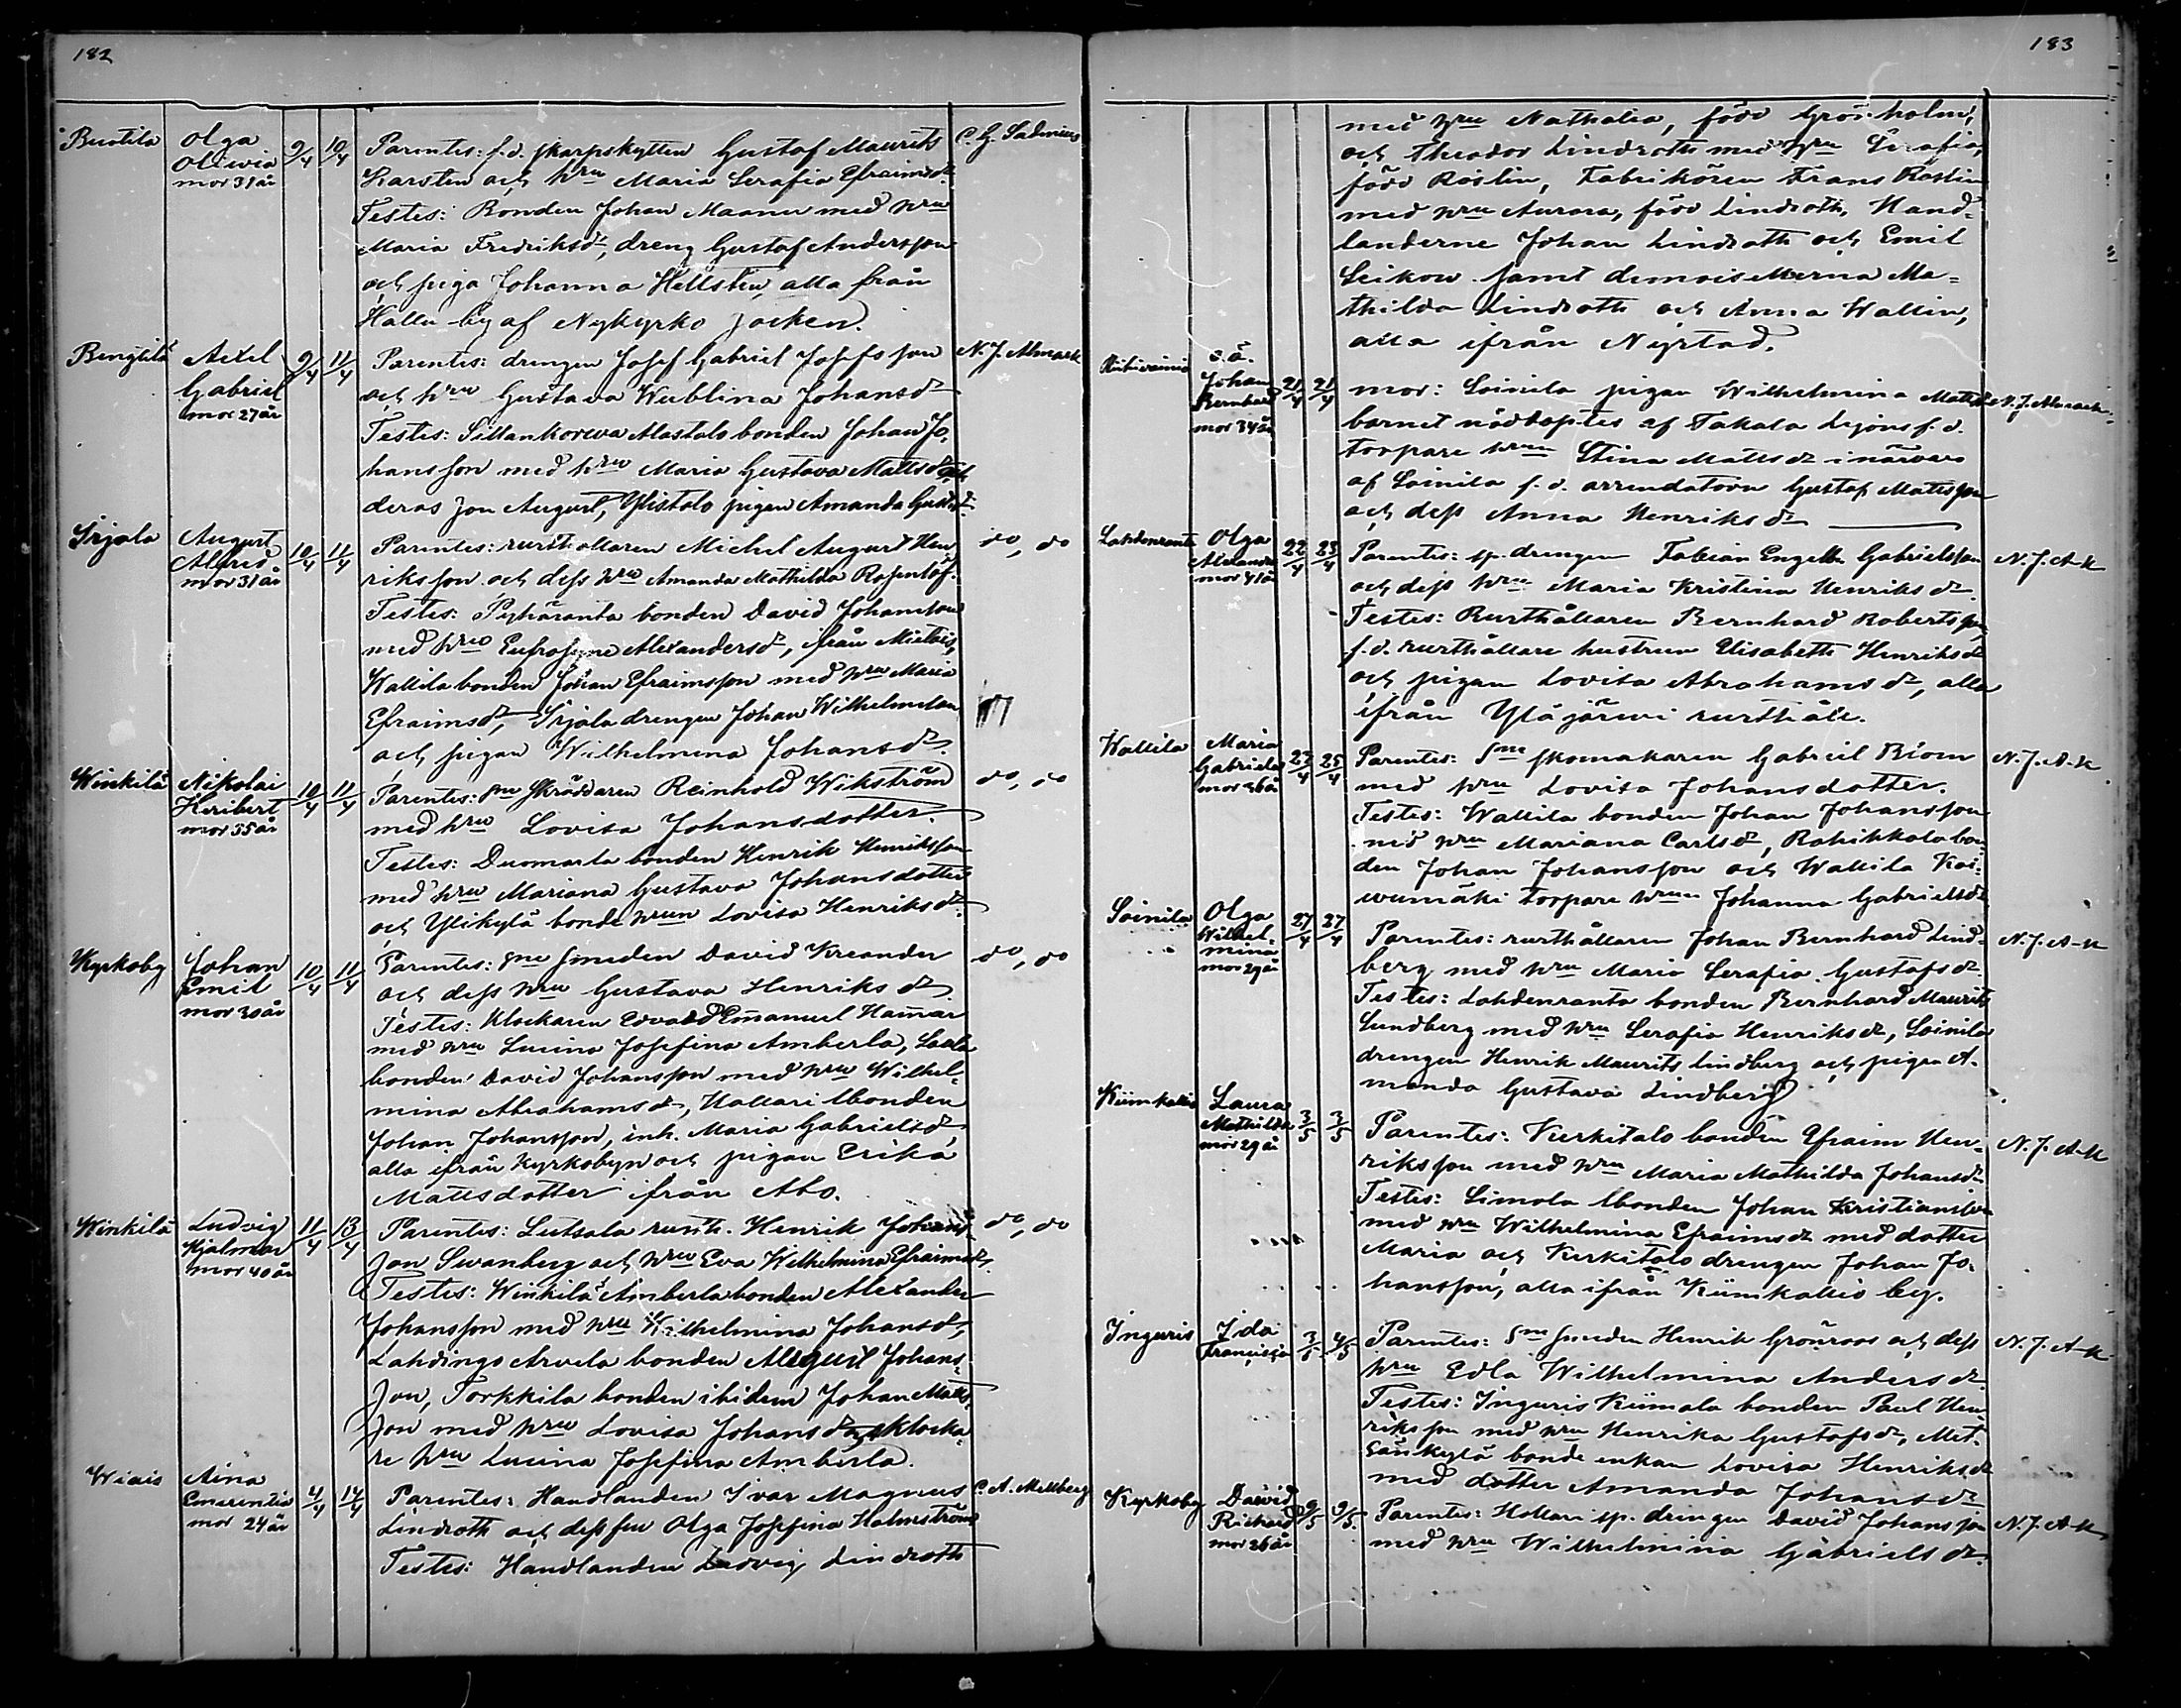 182
Buotila Olga Oliwia mor 31 år 9/4 10/4
Parentes: f.d. skarpskytten Gustaf Maurits C. G. Sadenius
Karsten och hru Maria Serafia Efraimsdr.
Testes: Bonden Johan Maanu med hru
Maria Fredriksdr, dreng Gustaf Andersson
och piga Johanna Hellsten, alla från
Hallu by af Nykyrko socken.
Bengtilä Axel Gabriel mor 27 år 9/4 11/4
Parentes: drengen Josef Gabriel Josefsson N. J. Almark
och hru Gustava Weblina Johansdr
Testes: Sillankorwa Alastalo bonden Johan Jo-
hansson med hru Maria Gustava Mattsdr och
deras son August, Ylistalo pigan Amanda Gustdr.
Sirjala August Alfred mor 31 år 10/4 11/4
Parentes: rusthållaren Michel August Hen do, do
riksson och dess hru Amanda Mathilda Rosenlöf.
Testes: Pyhäranta bonden David Johansson
med hru Eufrosyne Alexandersdr, ifrån Mietois,
Wallila bonden Johan Efraimsson med hru Maria
Efraimsdr, Sirjala drengen Johan Wilhelm
och pigan Wilhelmina Johansdr.
Winkilä Nikolai Heribert mor 35 år 10/4 11/4
Parentes: sne skräddaren Reinhold Wikström do, do
med hru Lovisa Johansdotter.
Testes: Duomarla bonden Henrik Henriksson
med hru Mariana Gustava Johansdotter
och Ylikylä bonde hrun Lovisa Henriksdr.
Kyrkoby Johan Emil mor 30 år 10/4 11/4
Parentes: sne smeden David Kreander do, do
och dess hru Gustava Henriksdr
Testes: Klockaren Edvard Emanuel Hammar
med hru Lucina Josefina Amberla, Laala
bonden David Johansson med hru Wilhel-
mina Abrahamsdr, Hallari lbonden
Johan Johansson, inh. Maria Gabrielsdr
alla ifrån Kyrkobyn och pigan Erika
Mattsdotter ifrån Abo.
Winkilä Ludvig Hjalmar mor 40 år 11/4 13/4
Parentes: Lutsala rusth. Henrik Johans- do, do
son Swanberg och hru Eva Wilhelmina Efraimsdr.
Testes: Winkilä Amberla bonden Alexander
Johansson med hru Wilhelmina Johansdr,
Lahdingo Arvela bonden August Johans-
son, Torkkila bonden ibidem Johan Matts-
son med hru Lovisa Johansdr och Klocka-
re hru Lucina Josefina Amberla.
Wiais Aina Emerentia mor 24 år 4/4 14/4
Parentes: Handlanden Ivar Magnus C. A. Mellberg
Lindroth och dess fru Olga Josefina Holmström
Testes: Handlanden Ludvig Lindroth
183
med hru Nathalia, född Grönholm,
och Theodor Lindroth med hru Serafia,
född Roslin, Fabrikören Frans Roslin
med hru Aurora, född Lindroth, Hand-
landerne Johan Lindroth och Emil
Leikow samt demoisellerna Ma-
thilda Lindroth och Anna Wallin,
alla ifrån Nystad.
o.ä. Johan Bernhard mor 34 år 21/4 21/4
mor: Soinila pigan Wilhelmina Mattsdr N. J. Almark
barnet nöddöptes af Takala Lejons f.d.
torpare hrun Stina Mattsdr i närvaro
af Soinila f.d. arrendatorn Gustaf Mattsson
och dess Anna Henriksdr
Lahdenranta Olga Alexandra mor 41 år 22/4 23/4
Parentes: sp. drengen Fabian Engelb. Gabrielsson N. J. A-k
och dess hru Maria Kristina Henriksdr.
Testes: Rusthållaren Bernhard Robertsson,
f.d. rusthållare hustrun Elisabeth Henriksdr
och pigan Lovisa Abrahamsdr, alla
ifrån Yläjärwi rusthåll.
Wallila Maria Gabriela mor 36 år 23/4 25/4
Parentes: sne skomakaren Gabriel Blom N. J. A-k
med hru Lovisa Johansdotter.
Testes: Wallila bonden Johan Johansson
med hru Mariana Carlsdr, Rahikkala bon-
den Johan Johansson och Wallila Koi-
wumäki torpare hrun Johanna Gabrielsdr
Soinila Olga Wilhel- mina mor 29 år 27/4 27/4
Parentes: rusthållaren Johan Bernhard Lind- N. J. A-k
berg med hru Maria Serafia Gustafsdr.
Testes: Lahdenranta bonden Bernhard Maurits
Sundberg med hru Serafia Henriksdr, Soinila
drengen Henrik Maurits Lindberg och pigan A-
manda Gustava Lindberg
Kiimkallio Laura Mathilda mor 29 år 3/5 3/5
Parentes: Kerkitalo bonden Efraim Hen- N. J. A-k
riksson med hru Maria Mathilda Johansdr
Testes: Simola lbonden Johan Kristiansson
med hru Wilhelmina Efraimsdr med dotter
Maria och Kerkitalo drengen Johan Jo-
hansson, alla ifrån Kiimkallio by.
Inguris Ida Francisca 3/5 4/5
Parentes: sne smeden Henrik Grönroos och dess N. J. A-k
hru Edla Wilhelmina Andersdr
Testes: Inguris Kiimala bonden Paul Hen-
riksson med hru Henrika Gustafsdr, Met-
sänkylä bonde enkan Lovisa Henriksdr
med dotter Amanda Johansdr
Kyrkoby David Richard mor 26 år 9/5 9/5
Parentes: Hollari sp. drengen David Johansson N. J. A-k
med hru Wilhelmina Gabrielsdr.